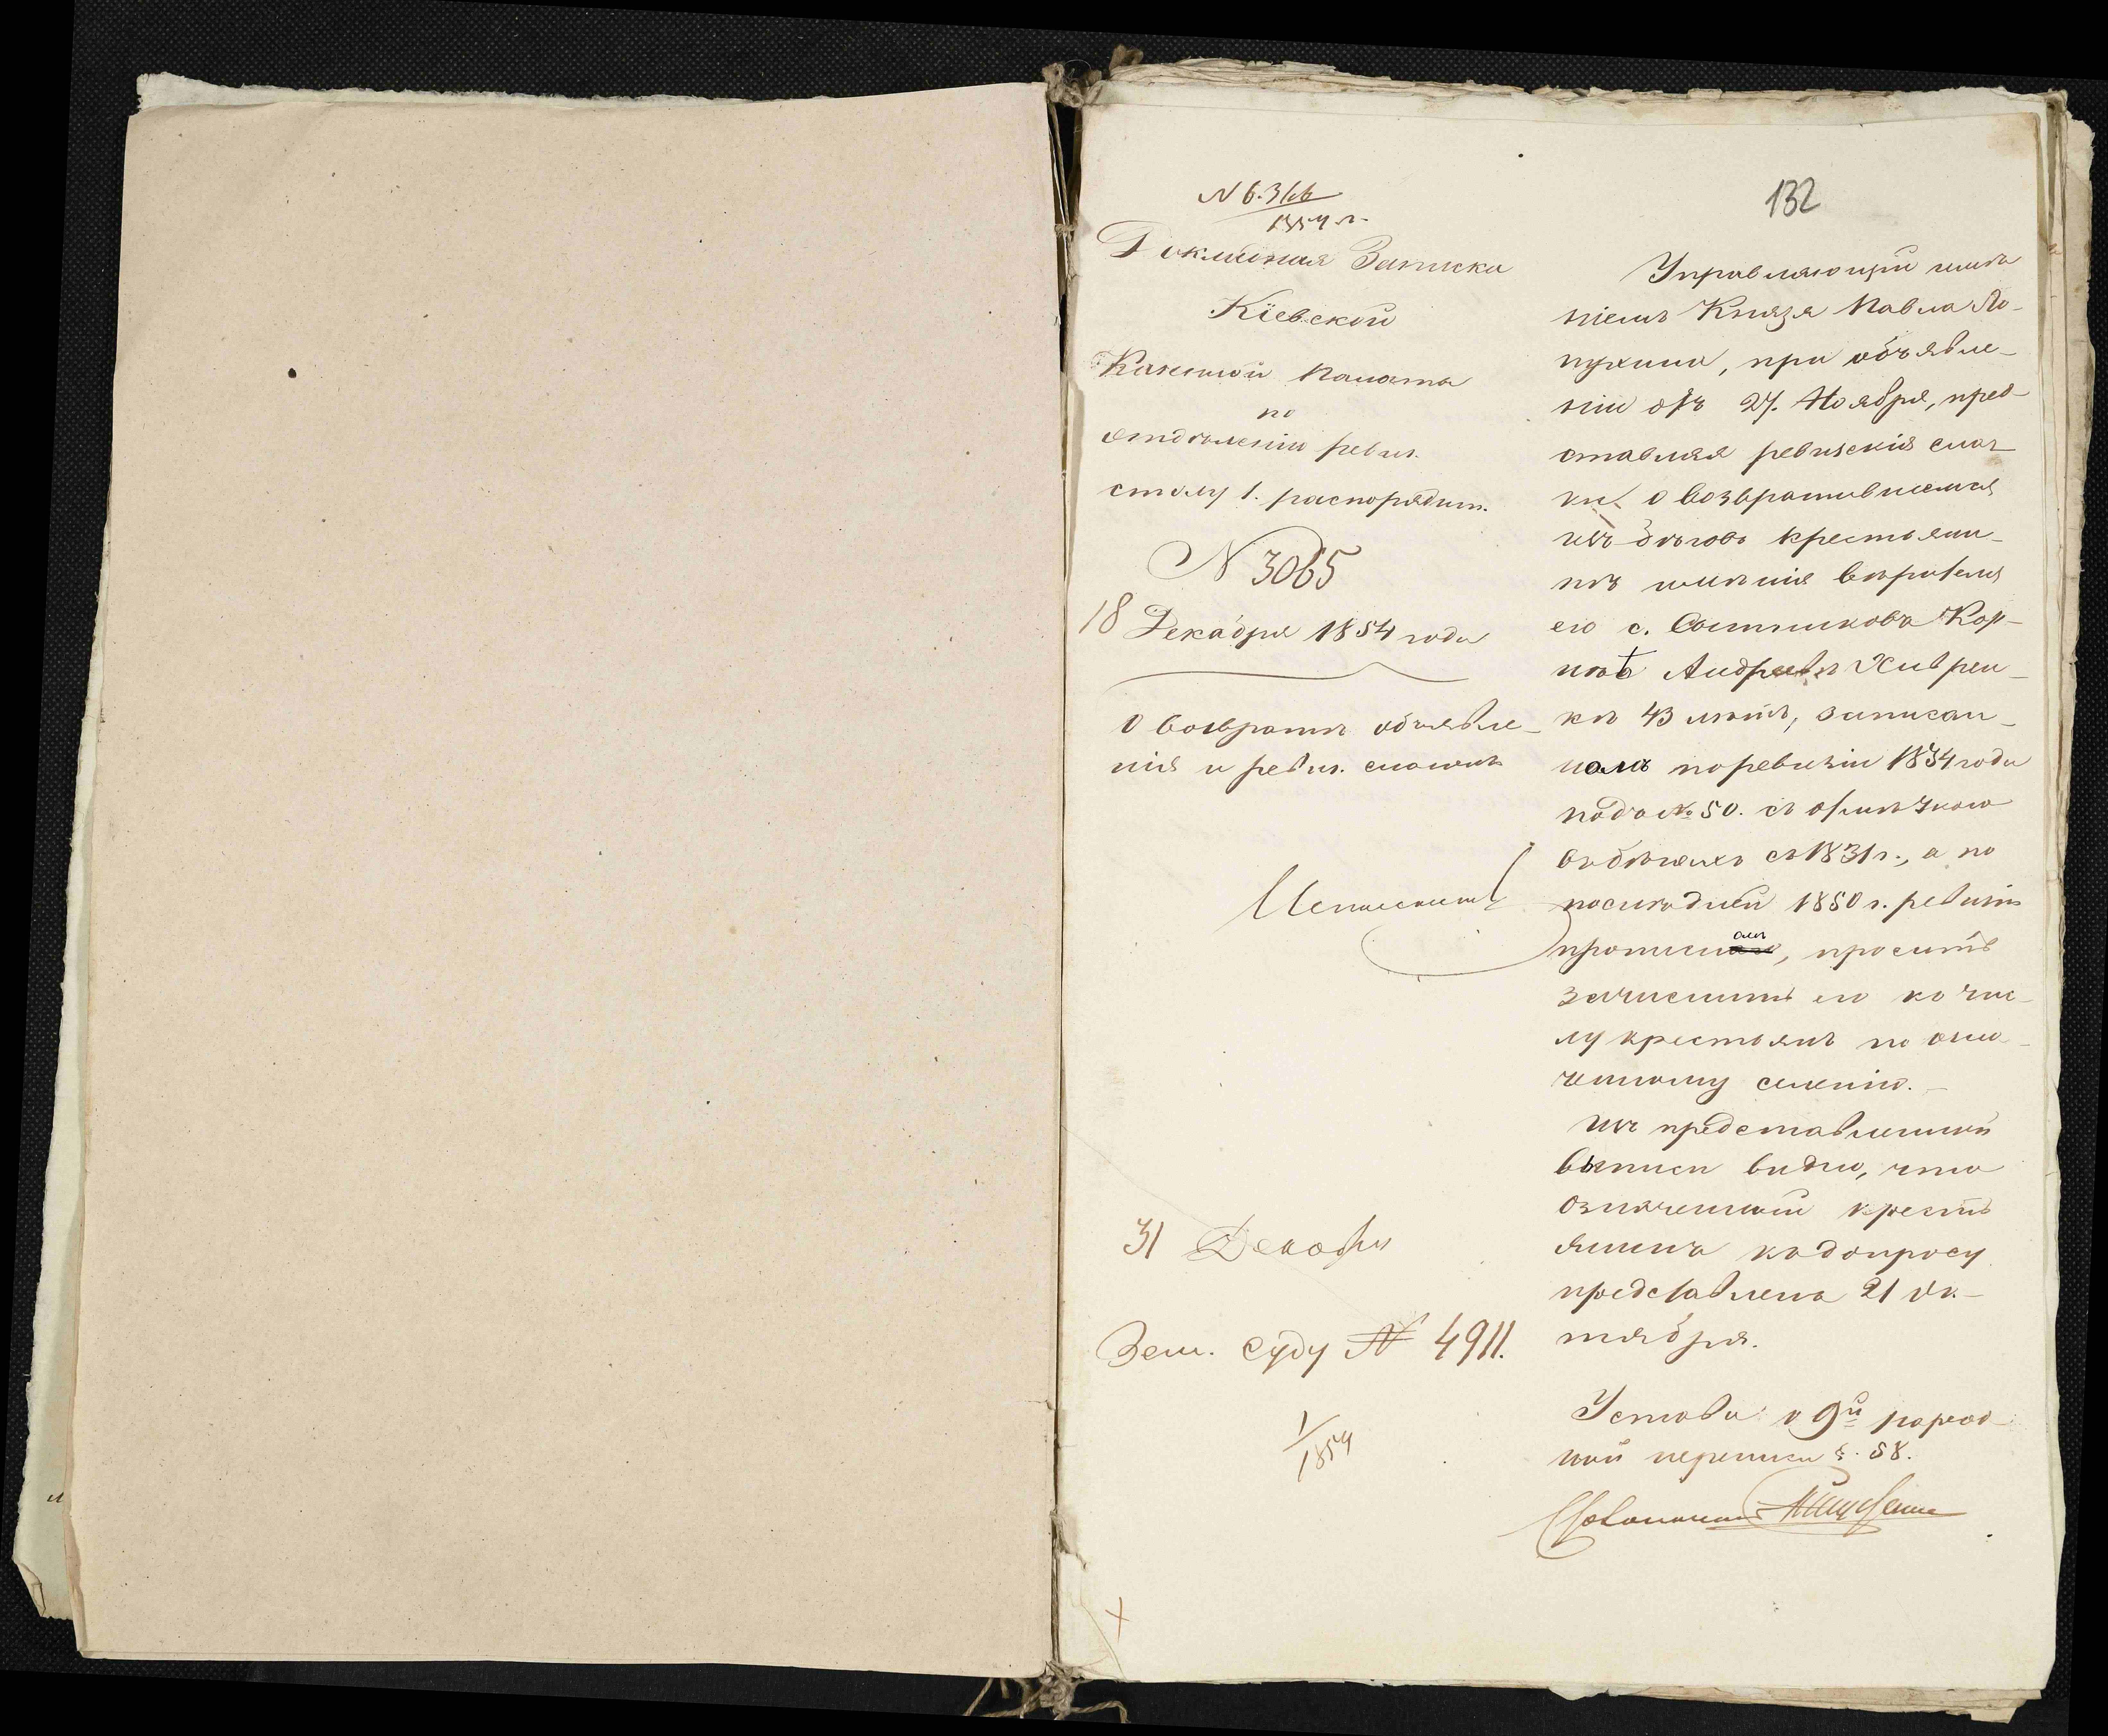 132
1854 г.
Докладная Записка
Кіевской
Казенной Палаты
по
отдѣленію ревиз.
столу 1. распорядит.
N 3065
18 Декабря 1854 года
О возвратѣ объявле-
нія и ревиз. сказокъ
Исполнить
31 Декабря
Зем. Суду № 4911.
1/1854
Управляющій имѣ
ніемъ Князя Павла Ло-
пухина, при объявле-
ніи отъ 27. Ноября, пред-
ставляя ревизскія сказ-
ки о возвратившемся
изъ бѣговъ крестьяни-
нѣ имѣнія вѣрителя
его с. Сытникова Кор-
нѣѣ Андреевѣ Хиврен-
кѣ 43 лѣтъ, записан-
номъ по ревизіи 1834 года
подъ № 50. съ отмѣткою
въ бѣгахъ съ 1831 г., а по
послѣдней 1850 г. ревизіи
прописномъ, проситъ
зачислить его къ чис-
лу крестьянъ по озна-
ченному селенію.-
Изъ представленной
выписи видно, что
означенный кресть
янинъ къ допросу
представленъ 21 Ок-
тября.
Устава о 9й народ-
ной переписи §. 58.